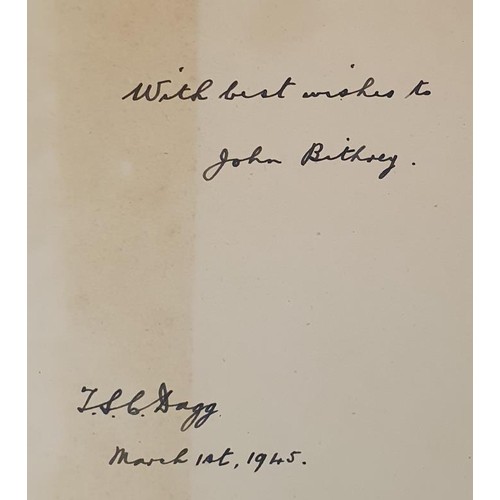 With best wishes to
John Bithrey.
T.S.C. Dagg
March 1st, 1945.